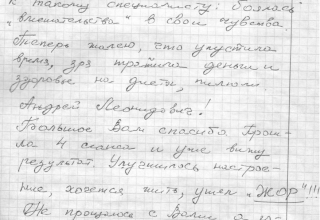 к такому специалисту! боялась
"вмешательства" в свои чувства.
Теперь жалею, что упустила
время, зря тратила деньги и
здоровье на диеты, пилюли.
Андрей Леонидович!
Большое Вам спасибо Прош-
ла 4 сеанса и уже вижу
результат. Улучшилось настрое-
ние, хочется жить, ушел "ЖОР"!!!
Не прощаюсь с Вами, а